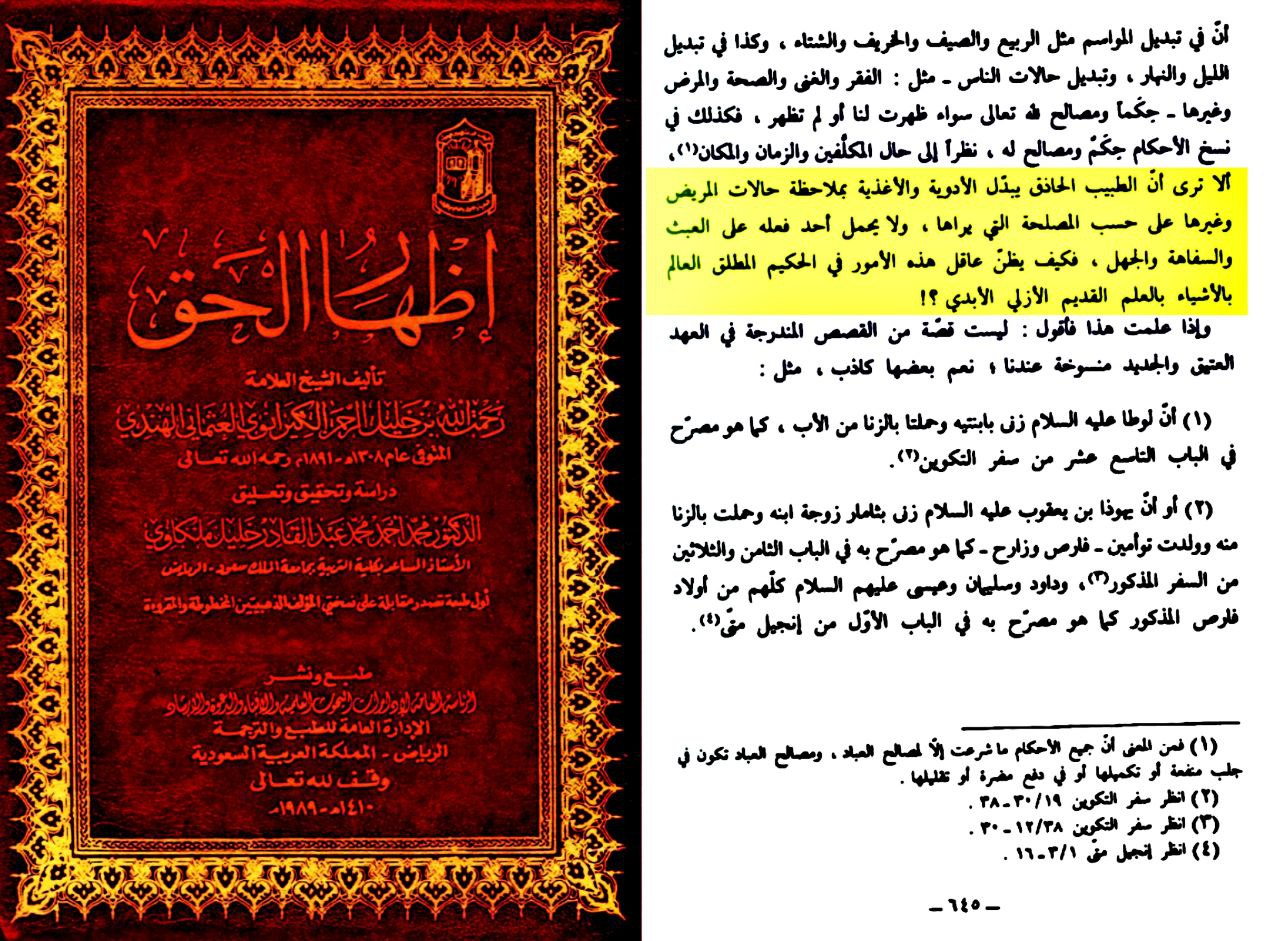 إظهار الحق
تأليف الشيخ العلامة
رحمت الله بن خليل الرحمن الكيرانوي العثماني الهندي
المتوفى عام ١٣٠٨هـ - ١٨٩١م رحمه الله تعالى
دراسة وتحقيق وتعليق
الدكتور محمد احمد محمد عبد القادر خليل ملكاوي
الأستاذ المساعد بكلية التربية بجامعة الملك سعود - الرياض
أول طبعة تصدر مقابلة على نسختي المؤلف الذهبيتين المخطوطة والمقروءة
طبع ونشر
الرئاسة العامة لإدارات البحوث العلمية والإفتاء والدعوة والإرشاد
الإدارة العامة للطبع والترجمة
الرياض - المملكة العربية السعودية
وقف لله تعالى
١٤١٠هـ - ١٩٨٩م
أنّ في تبديل المواسم مثل الربيع والصيف والخريف والشتاء ، وكذا في تبديل
الليل والنهار ، وتبديل حالات الناس ـ مثل : الفقر والغنى والصحة والمرض
وغيرها ـ حِكَماً ومصالح لله تعالى سواء ظهرت لنا أو لم تظهر ، فكذلك في
نسخ الأحكام حِكَمٌ ومصالح له ، نظراً إلى حال المكلّفين والزمان والمكان(١)،
ألا ترى أنّ الطبيب الحاذق يبدّل الأدوية والأغذية بملاحظة حالات المريض
وغيرها على حسب المصلحة التي يراها ، ولا يحمل أحد فعله على العبث
والسفاهة والجهل ، فكيف يظنّ عاقل هذه الأمور في الحكيم المطلق العالم
بالأشياء بالعلم القديم الأزلي الأبدي ؟!
وإذا علمت هذا فأقول : ليست قصّة من القصص المندرجة في العهد
العتيق والجديد منسوخة عندنا ؛ نعم بعضها كاذب ، مثل :
(١) أنّ لوطا عليه السلام زنى بابنتيه وحملتا بالزنا من الأب ، كما هو مصرّح
في الباب التاسع عشر من سفر التكوين(٢).
(٢) أو أنّ يهوذا بن يعقوب عليه السلام زنى بثامار زوجة ابنه وحملت بالزنا
منه وولدت توأمين ـ فارص وزارح ـ كما هو مصرّح به في الباب الثامن والثلاثين
من السفر المذكور(٣)، وداود وسليمان وعيسى عليهم السلام كلّهم من أولاد
فارص المذكور كما هو مصرّح به في الباب الأوّل من إنجيل متّى(٤).
(١) فمن المعنى أنّ جميع الأحكام ما شرعت إلّا لمصالح العباد ، ومصالح العباد تكون في
جلب منفعة أو تكميلها أو في دفع مضرة أو تقليلها .
(٢) انظر سفر التكوين ١٩/ ٣٠ـ ٣٨ .
(٣) انظر سفر التكوين ٣٨/ ١٢ـ ٣٠ .
(٤) انظر إنجيل متّى ١/ ٣ـ ١٦ .
ـ ٦٤٥ ـ